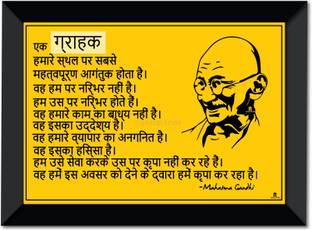 एक ग्राहक
हमारे स्थल पर सबसे
महत्वपूर्ण आगंतुक होता है।
वह हम पर निर्भर नही है।
हम उस पर निर्भर होते है।
वह हमारे काम का बाधय नहीं है।
वह इसका उद्देश्य है।
वह हमारे व्यापार का अनगिनत है।
वह इसका हिस्सा है।
हम उसे सेवा करके उस पर कृपा नहीं कर रहे हैं।
वह हमें इस अवसर को देने के द्वारा हमें कृपा कर रहा है।
-Mahatma Gandhi